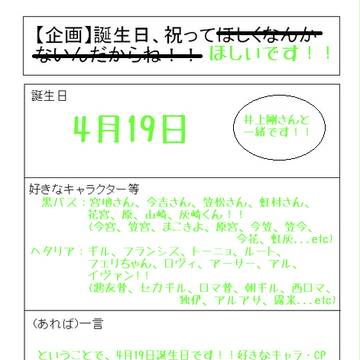 【企画】誕生日、祝ってほしくなんか
ないんだからね！！ ほしいです！！
誕生日
4月19日
井上剛さんと
一緒です！！
好きなキャラクター等
黒バス：宮地さん、今吉さん、笠松さん、虹村さん、
花宮、原、山崎、灰崎くん！！
(今宮、笠宮、まこきよ、原宮、今笠、笠今、
今花、虹灰...etc)
ヘタリア：ギル、フランシス、トーニョ、ルート、
フェリちゃん、ロヴィ、アーサー、アル、
イヴァン！！
(悪友骨、セカギル、ロマ骨、朝ギル、西ロマ、
独伊、アルアサ、露米...etc)
(あれば)一言
ということで、4月19日誕生日です！！好きなキャラ・CP